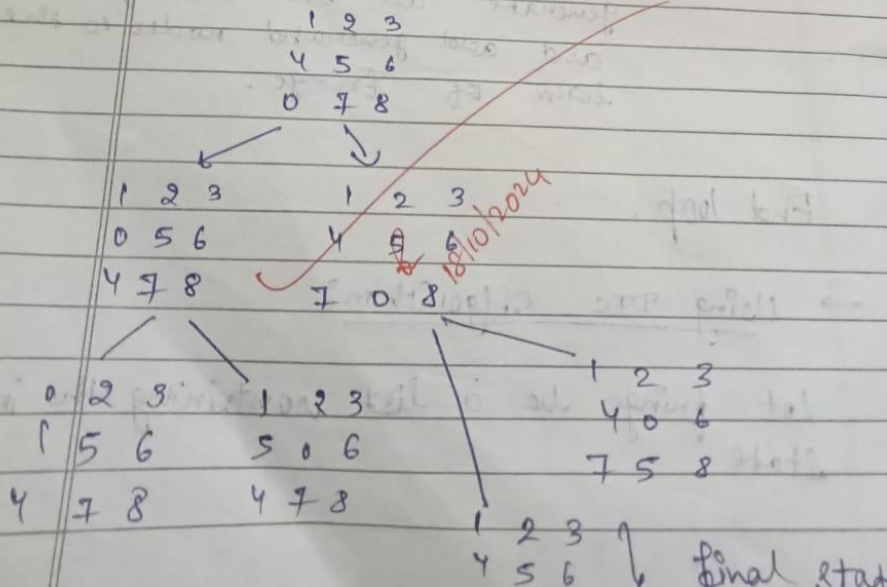 1 2 3
4 5 6
0 7 8
1 2 3
0 5 6
4 7 8
1 2 3
4 5 6
7 0 8
18/10/2024
0 2 3
1 5 6
4 7 8
1 2 3
5 0 6
4 7 8
1 2 3
4 0 6
7 5 8
1 2 3
4 5 6
final stat